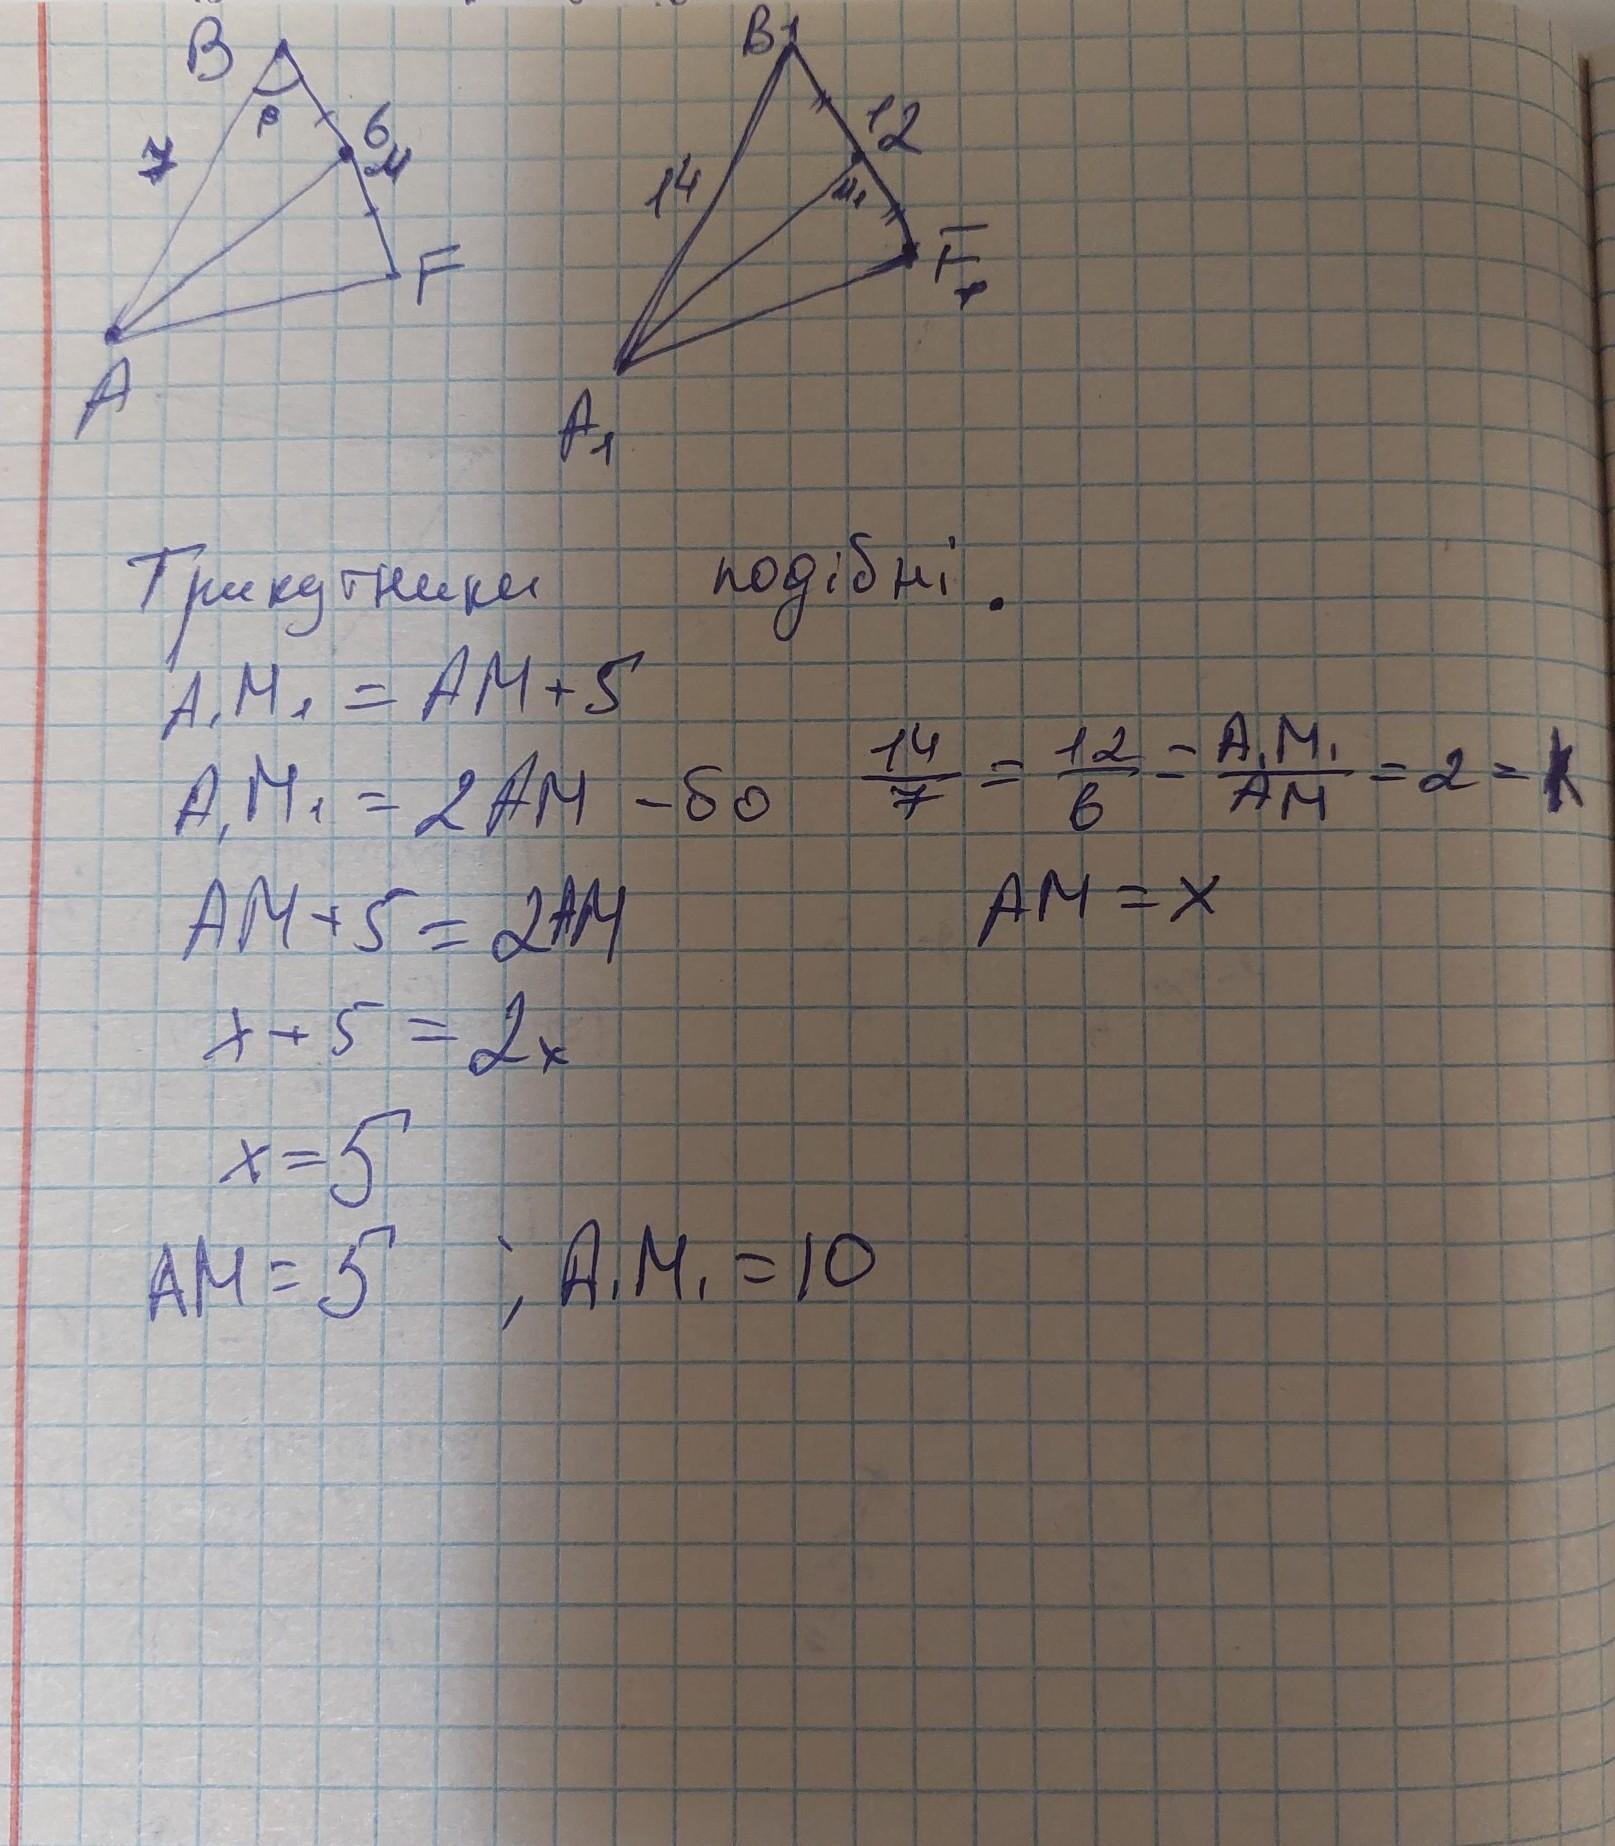 B
B1
7
β
6
M
F
A
14
12
M1
F1
A1
Трикутники подібні.
A1M1 = AM + 5
A1M1 = 2AM - бо 14/7 = 12/6 = A1M1/AM = 2 = k
AM + 5 = 2AM AM = x
x + 5 = 2x
x = 5
AM = 5 ; A1M1 = 10